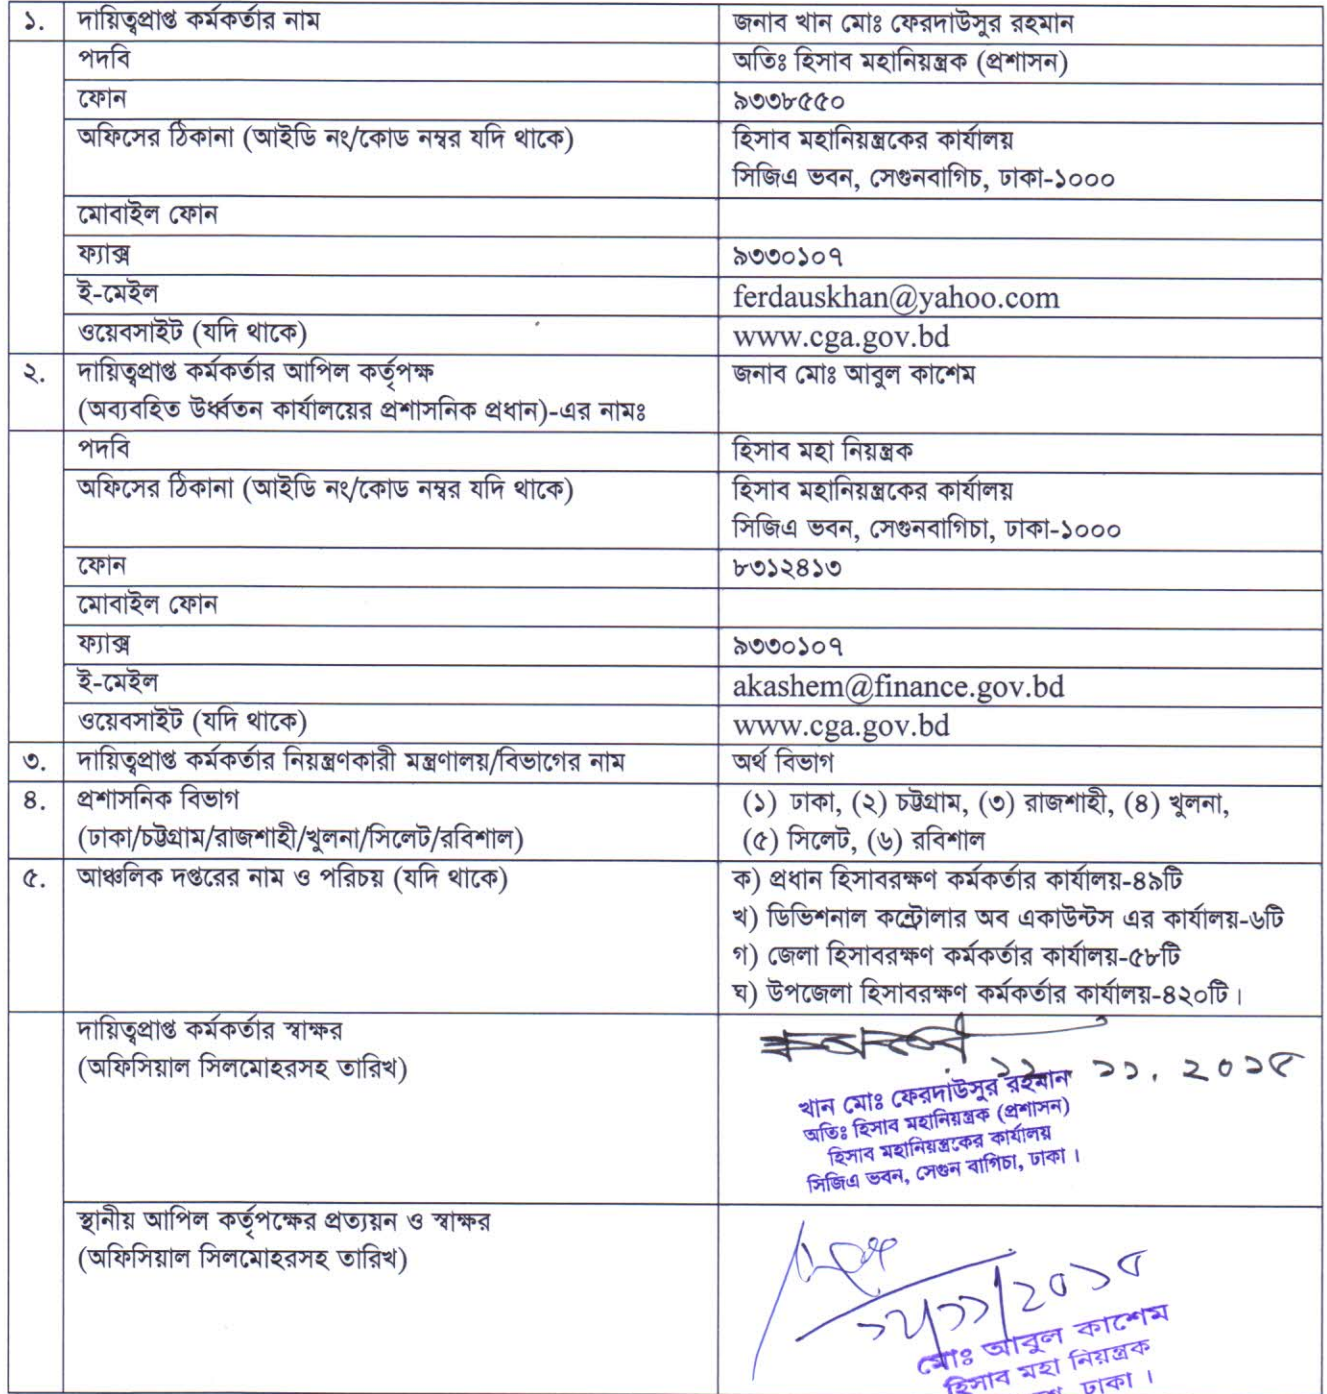 ১. দায়িত্বপ্রাপ্ত কর্মকর্তার নাম জনাব খান মোঃ ফেরদাউসুর রহমান
পদবি অতিঃ হিসাব মহানিয়ন্ত্রক (প্রশাসন)
ফোন ৯৩৩৮৫৫০
অফিসের ঠিকানা (আইডি নং/কোড নম্বর যদি থাকে) হিসাব মহানিয়ন্ত্রকের কার্যালয়
সিজিএ ভবন, সেগুনবাগিচ, ঢাকা-১০০০
মোবাইল ফোন
ফ্যাক্স ৯৩৩০১০৭
ই-মেইল ferdauskhan@yahoo.com
ওয়েবসাইট (যদি থাকে) www.cga.gov.bd
২. দায়িত্বপ্রাপ্ত কর্মকর্তার আপিল কর্তৃপক্ষ জনাব মোঃ আবুল কাশেম
(অব্যবহিত উর্ধ্বতন কার্যালয়ের প্রশাসনিক প্রধান)-এর নামঃ
পদবি হিসাব মহা নিয়ন্ত্রক
অফিসের ঠিকানা (আইডি নং/কোড নম্বর যদি থাকে) হিসাব মহানিয়ন্ত্রকের কার্যালয়
সিজিএ ভবন, সেগুনবাগিচা, ঢাকা-১০০০
ফোন ৮৩১২৪১৩
মোবাইল ফোন
ফ্যাক্স ৯৩৩০১০৭
ই-মেইল akashem@finance.gov.bd
ওয়েবসাইট (যদি থাকে) www.cga.gov.bd
৩. দায়িত্বপ্রাপ্ত কর্মকর্তার নিয়ন্ত্রণকারী মন্ত্রণালয়/বিভাগের নাম অর্থ বিভাগ
৪. প্রশাসনিক বিভাগ (১) ঢাকা, (২) চট্টগ্রাম, (৩) রাজশাহী, (৪) খুলনা,
(ঢাকা/চট্টগ্রাম/রাজশাহী/খুলনা/সিলেট/রবিশাল) (৫) সিলেট, (৬) রবিশাল
৫. আঞ্চলিক দপ্তরের নাম ও পরিচয় (যদি থাকে) ক) প্রধান হিসাবরক্ষণ কর্মকর্তার কার্যালয়-৪৯টি
খ) ডিভিশনাল কন্ট্রোলার অব একাউন্টস এর কার্যালয়-৬টি
গ) জেলা হিসাবরক্ষণ কর্মকর্তার কার্যালয়-৫৮টি
ঘ) উপজেলা হিসাবরক্ষণ কর্মকর্তার কার্যালয়-৪২০টি।
দায়িত্বপ্রাপ্ত কর্মকর্তার স্বাক্ষর
(অফিসিয়াল সিলমোহরসহ তারিখ)
১১. ২০১৫
খান মোঃ ফেরদাউসুর রহমান
অতিঃ হিসাব মহানিয়ন্ত্রক (প্রশাসন)
হিসাব মহানিয়ন্ত্রকের কার্যালয়
সিজিএ ভবন, সেগুন বাগিচা, ঢাকা।
স্থানীয় আপিল কর্তৃপক্ষের প্রত্যয়ন ও স্বাক্ষর
(অফিসিয়াল সিলমোহরসহ তারিখ)
১২/১১/২০১৫
মোঃ আবুল কাশেম
হিসাব মহা নিয়ন্ত্রক
ঢাকা।